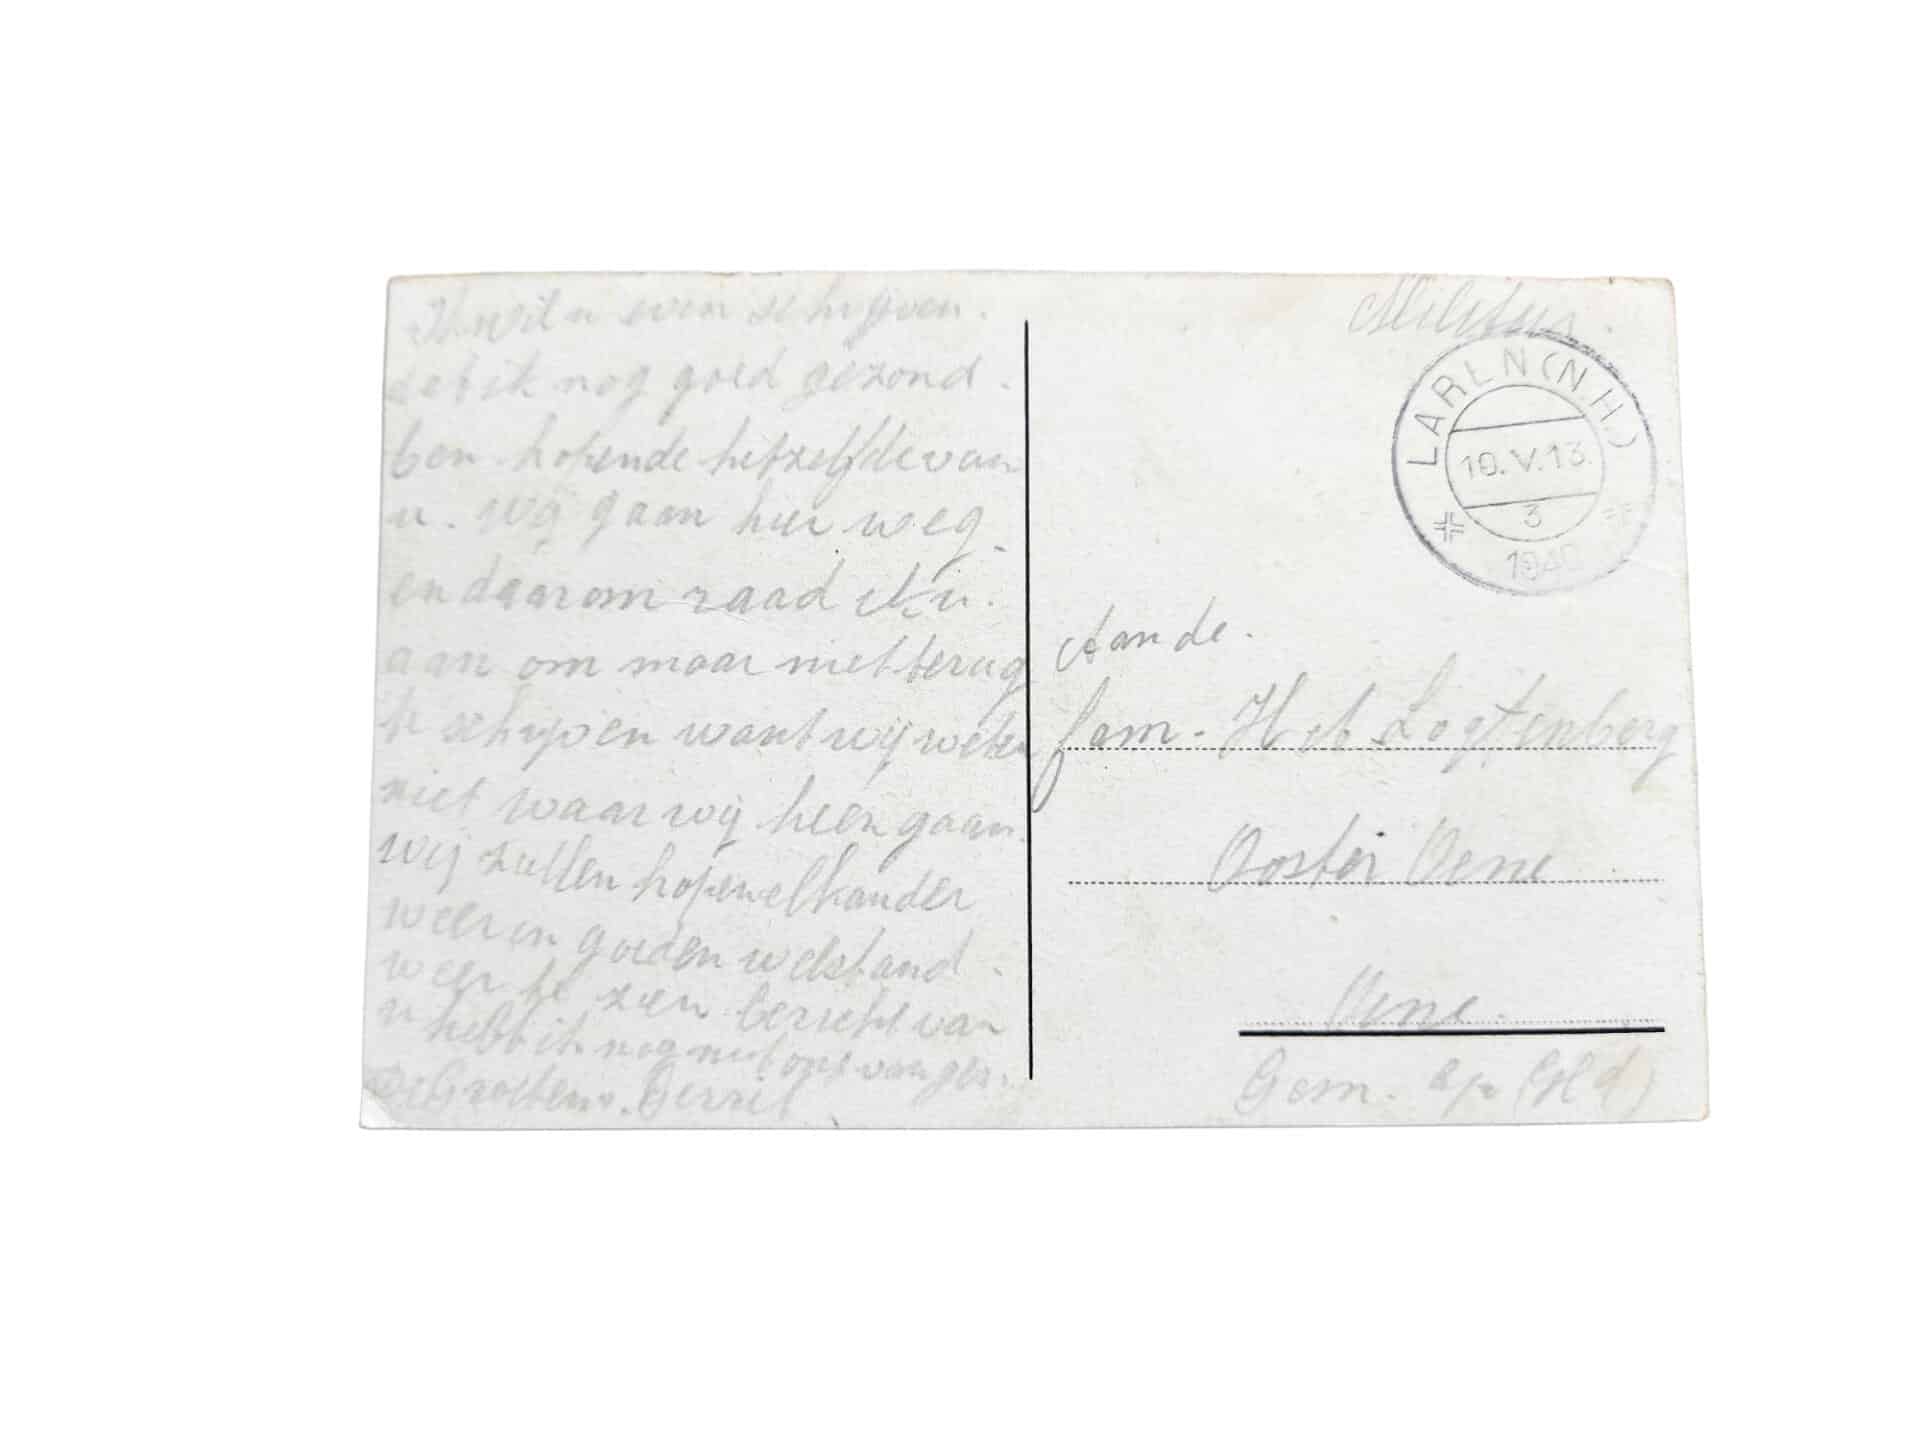 Ik wil u even schrijven.
dat ik nog goed gezond.
ben hopende hetzelfde van
u. wij gaan hier weg.
en daarom raad ik u.
aan om maar niet terug
te schrijven want wij weten
niet waar wij heen gaan.
wij zullen hopen elkander
weer in goeden welstand.
weer te zien bericht van
u heb ik nog niet ontvangen.
De Groeten. Gerrit
Militair.
LAREN (N.H.)
10.V.13.
3
1940
Aan de.
fam. H Logtenberg
Ooster Oene
Oene.
Gem. Ep (Gld)